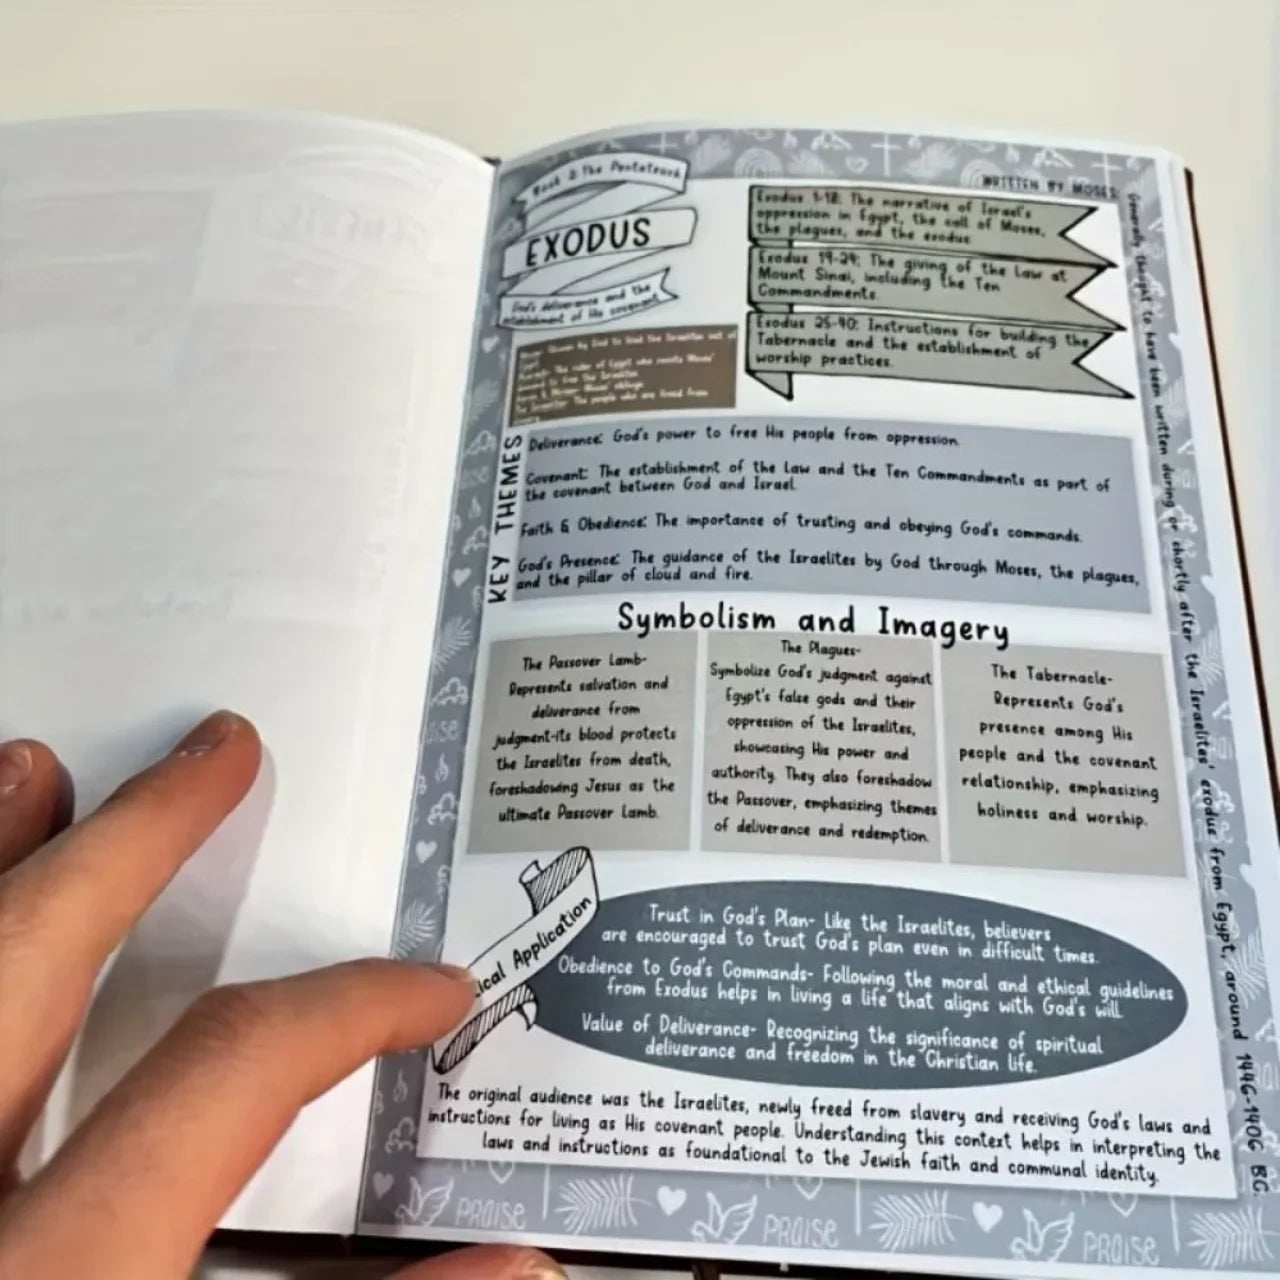 Book 2: The Pentateuch
EXODUS
God's deliverance and the
establishment of His covenant
WRITTEN BY MOSES:
Generally thought to have been written during or shortly after the Israelites' exodus from Egypt, around 1446-1406 BC
Exodus 1-18: The narrative of Israel's
oppression in Egypt, the call of Moses,
the plagues, and the exodus
Exodus 19-24: The giving of the Law at
Mount Sinai, including the Ten
Commandments.
Exodus 25-40: Instructions for building the
Tabernacle and the establishment of
worship practices.
Moses: Chosen by God to lead the Israelites out of
Egypt
The ruler of Egypt who resists Moses'
demand to free the Israelites
Aaron & Miriam: Moses' siblings
The Israelites: The people who are freed from
KEY THEMES
Deliverance: God's power to free His people from oppression.
Covenant: The establishment of the Law and the Ten Commandments as part of
the covenant between God and Israel.
Faith & Obedience: The importance of trusting and obeying God's commands.
God's Presence: The guidance of the Israelites by God through Moses, the plagues,
and the pillar of cloud and fire.
Symbolism and Imagery
The Passover Lamb-
Represents salvation and
deliverance from
judgment-its blood protects
the Israelites from death,
foreshadowing Jesus as the
ultimate Passover Lamb.
The Plagues-
Symbolize God's judgment against
Egypt's false gods and their
oppression of the Israelites,
showcasing His power and
authority. They also foreshadow
the Passover, emphasizing themes
of deliverance and redemption.
The Tabernacle-
Represents God's
presence among His
people and the covenant
relationship, emphasizing
holiness and worship.
ical Application
Trust in God's Plan- Like the Israelites, believers
are encouraged to trust God's plan even in difficult times.
Obedience to God's Commands- Following the moral and ethical guidelines
from Exodus helps in living a life that aligns with God's will.
Value of Deliverance- Recognizing the significance of spiritual
deliverance and freedom in the Christian life.
The original audience was the Israelites, newly freed from slavery and receiving God's laws and
instructions for living as His covenant people. Understanding this context helps in interpreting the
laws and instructions as foundational to the Jewish faith and communal identity.
PRAISE
PRAISE
PRAISE